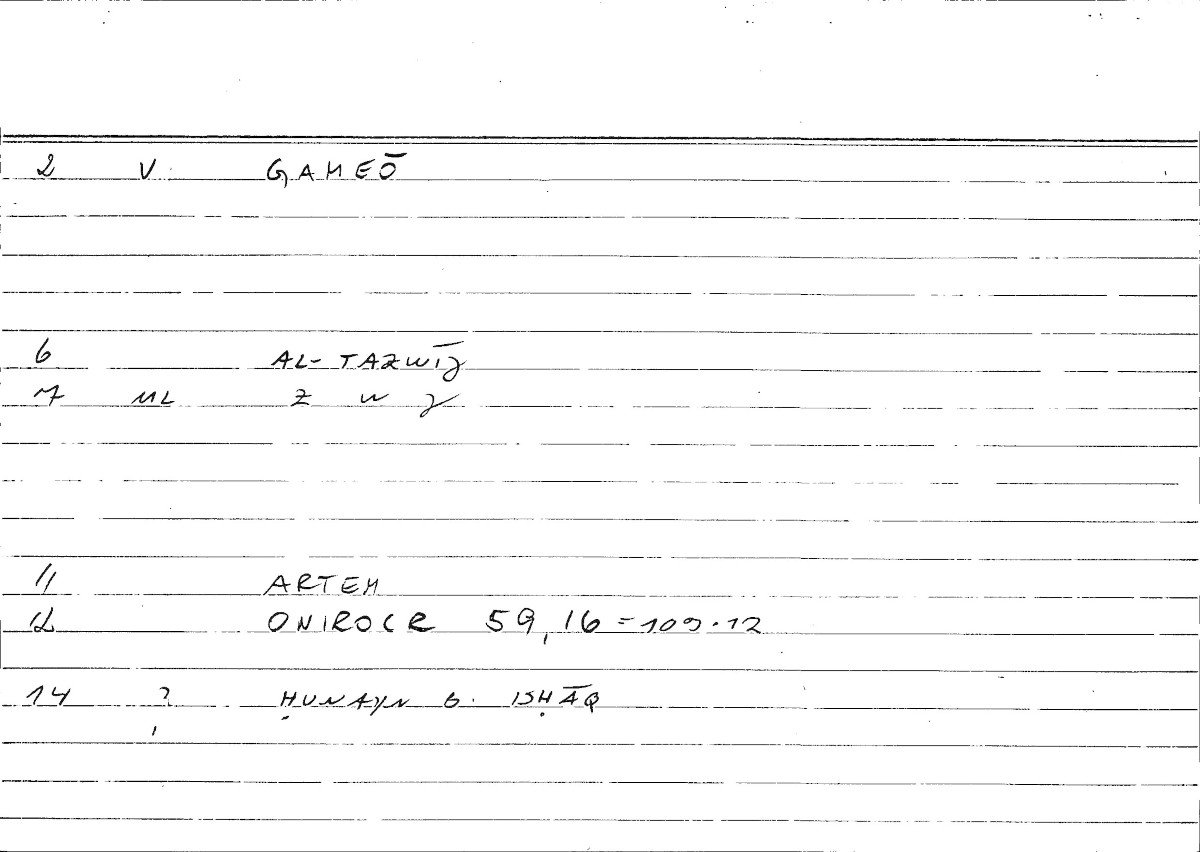 2 V GAMEŌ
6 AL-TAZWĪJ
7 ML Z W J
11 ARTEM
12 ONIROCR 59,16=109.12
14 ? ḤUNAYN B. ISḤĀQ